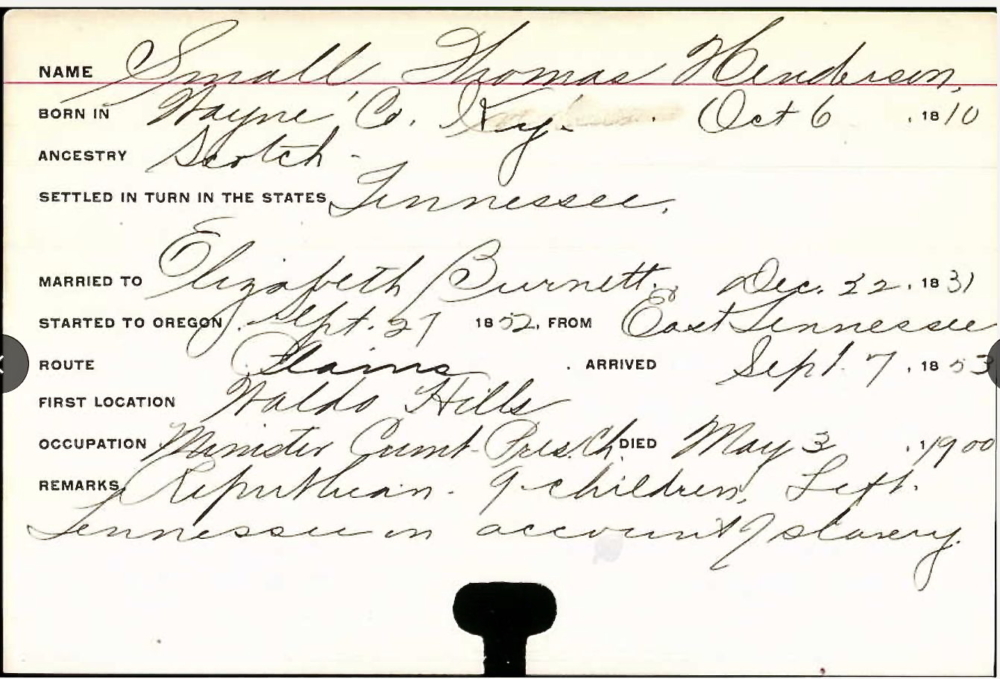 NAME Small Thomas Henderson,
BORN IN Wayne Co. Ky. Oct 6, 1810
ANCESTRY Scotch
SETTLED IN TURN IN THE STATES Tennessee,
MARRIED TO Elizabeth Burnett, Dec. 22, 1831
STARTED TO OREGON Sept. 27 1852, FROM East Tennessee
ROUTE Plains. ARRIVED Sept. 7, 1853
FIRST LOCATION Waldo Hills
OCCUPATION Minister Cumb. Pres. Ch DIED May 3, 1900
REMARKS Republican. 9 children, Left
Tennessee on account of slavery.